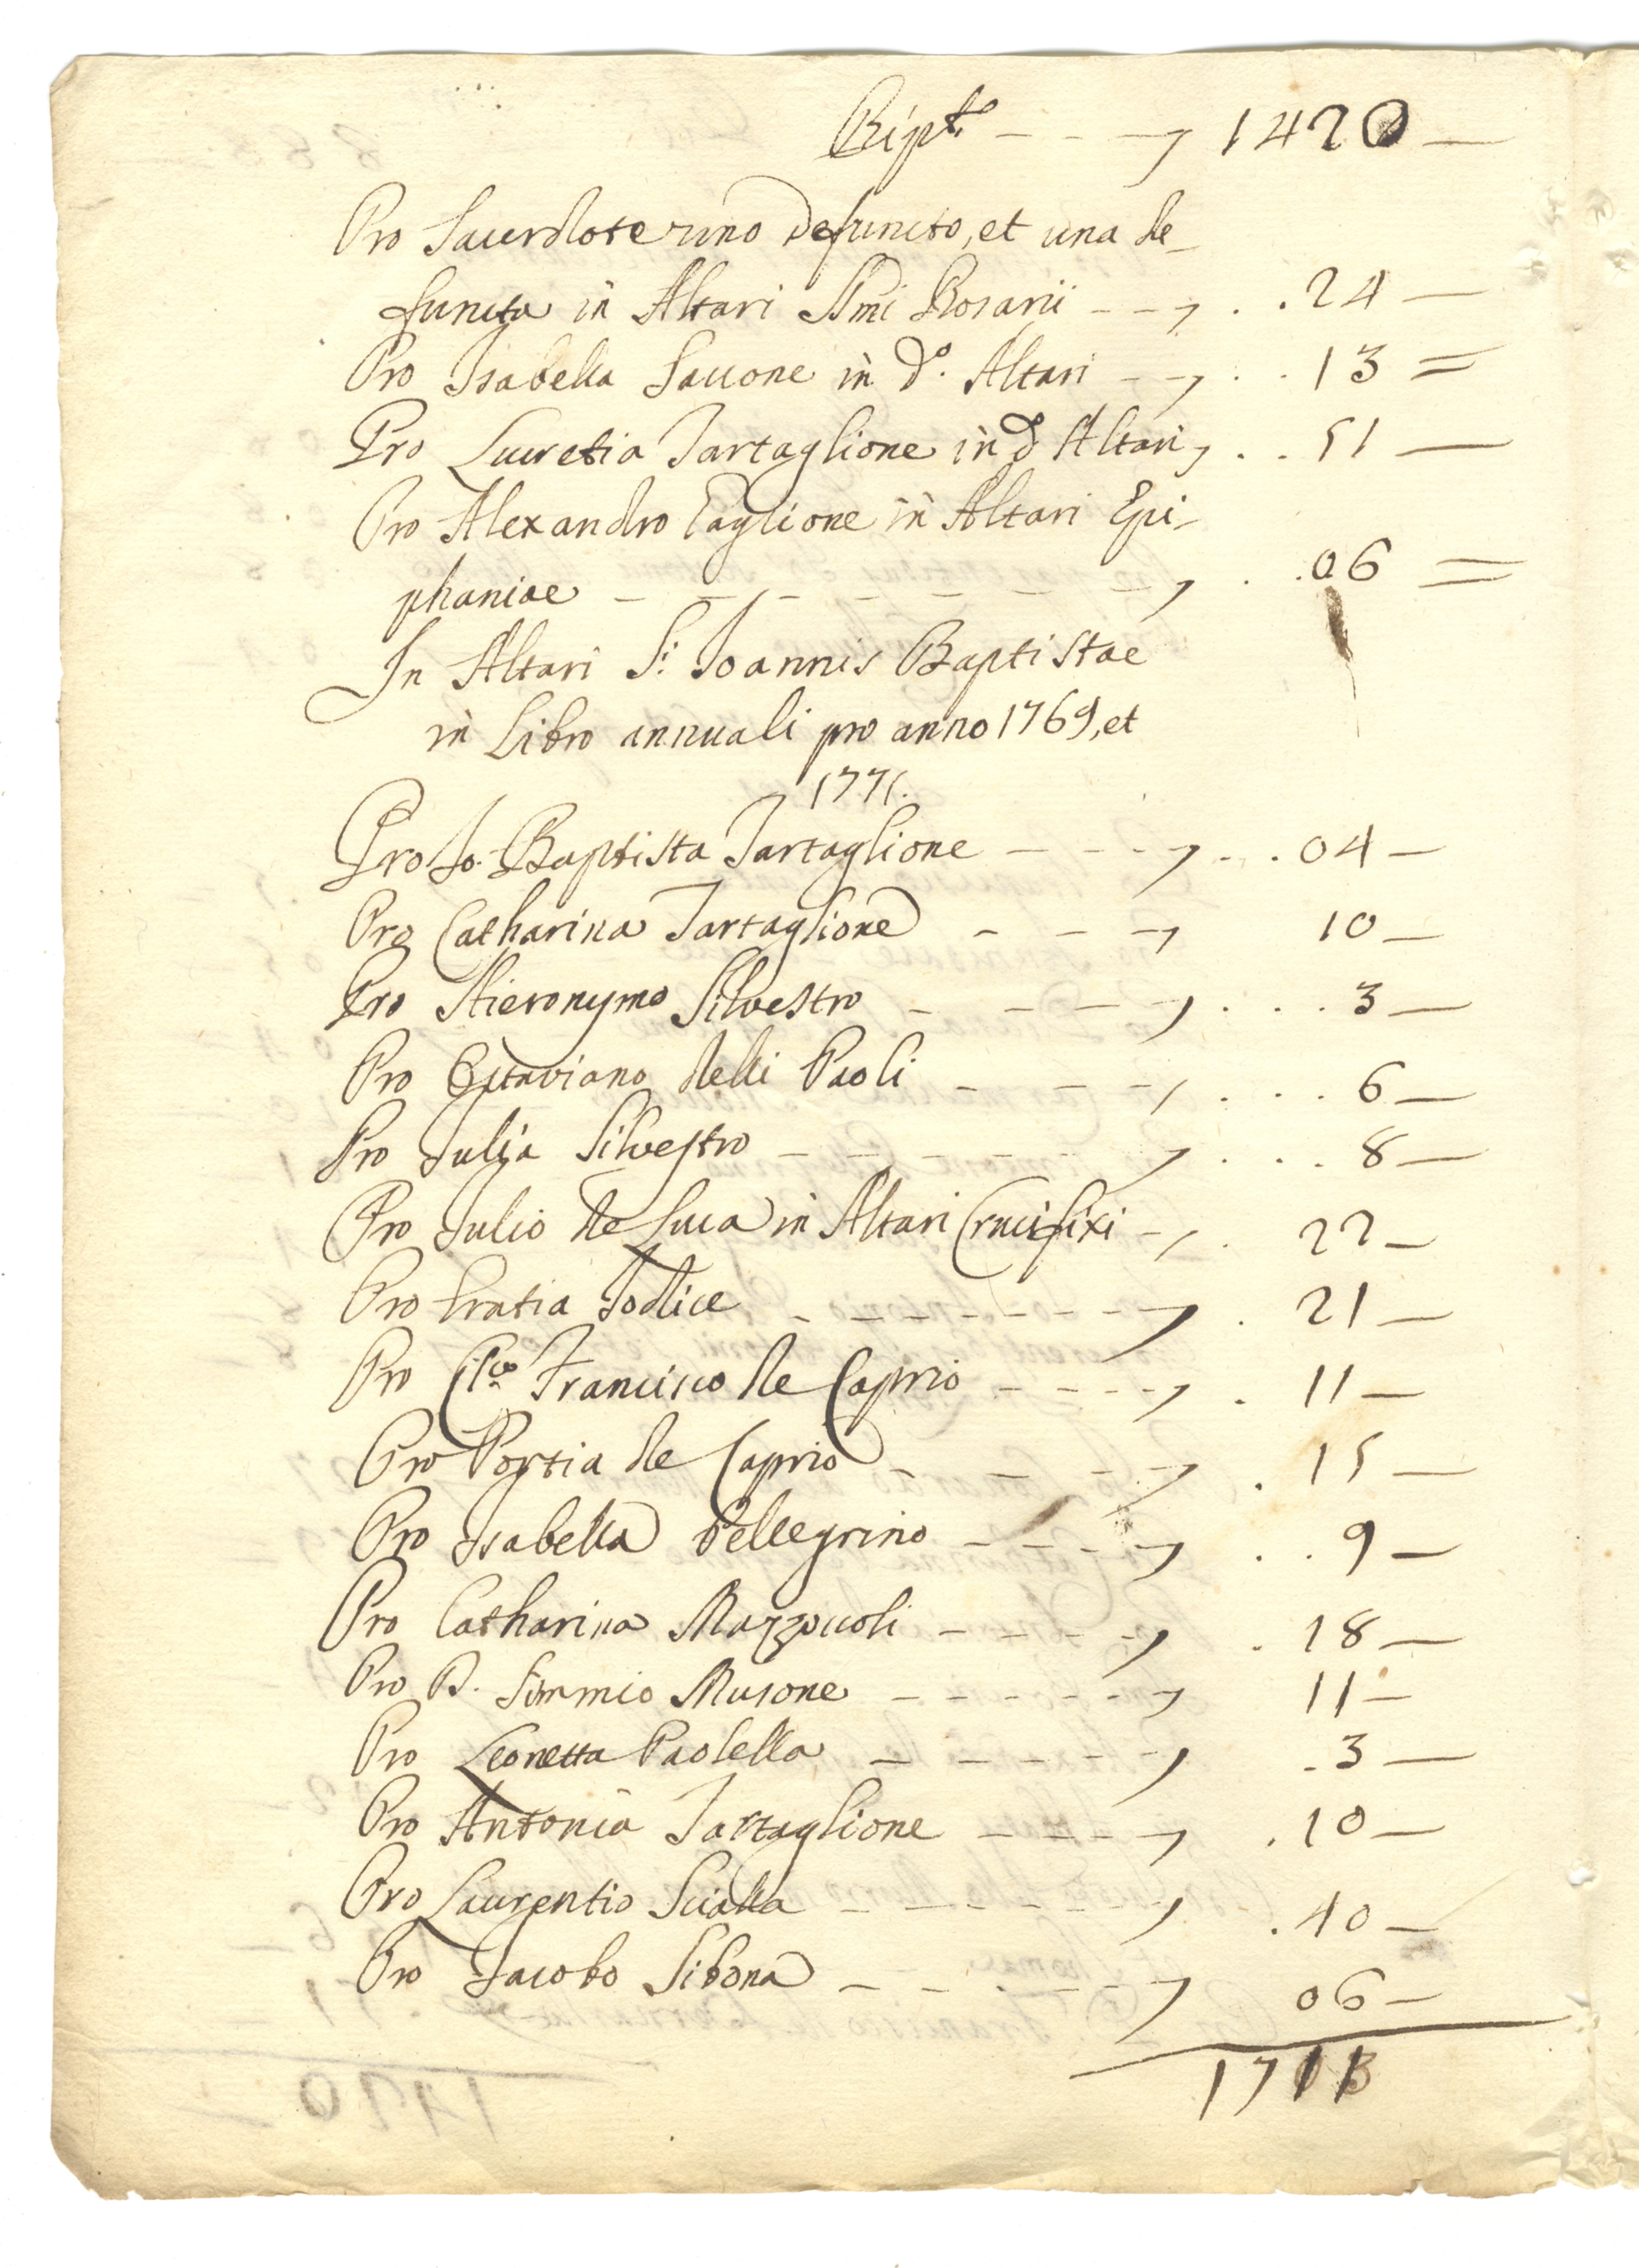 Ript.º - - - 1420 —
Pro Sacerdote uno defuncto, et una de-
functa in Altari SSmi Rosarii - - . . 24 —
Pro Isabella Saccone in d.º Altari - - . . 13 =
Pro Lucretia Tartaglione in d.º Altari . . 51 —
Pro Alexandro Taglione in Altari Epi-
phaniae - - - - - - - . . 06 =
In Altari S.i Joannis Baptistae
in Libro annuali pro anno 1769, et
1771.
Pro Jo: Baptista Tartaglione - - - . . 04 —
Pro Catharina Tartaglione - - - 10 —
Pro Hieronymo Silvestro - - - - . . . 3 —
Pro Octaviano delli Paoli - - - . . . 6 —
Pro Julia Silvestro - - - - - . . . 8 —
Pro Julio de Luca in Altari Crucifixi - . 22 —
Pro Gratia Jodice - - - - - - . 21 —
Pro Cl.co Francisco de Caprio - - - - . 11 —
Pro Portia de Caprio - - - - . 15 —
Pro Isabella Pellegrino - - - - . . 9 —
Pro Catharina Mazzoccoli - - - - . 18 —
Pro D. Simmio Musone - - - - - - 11 —
Pro Leonetta Paolella - - - - - . 3 —
Pro Antonia Tartaglione - - - - . 10 —
Pro Laurentio Scialla - - - - - - . 40 —
Pro Jacobo Sibona - - - - - 06 —